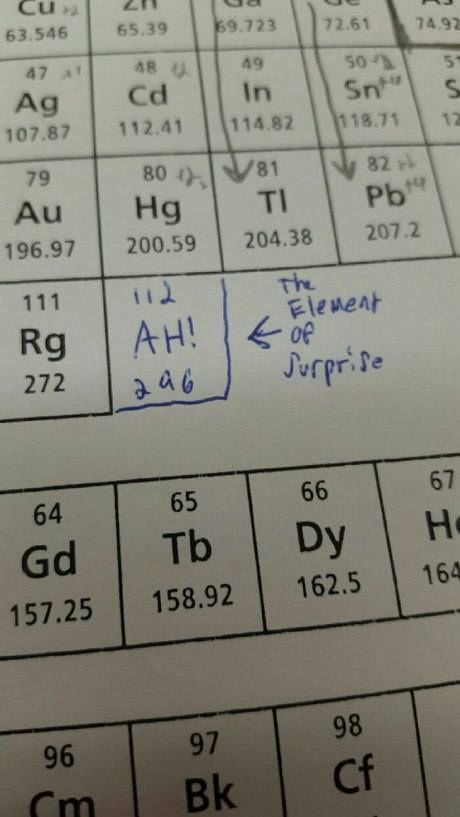 Cu +2 Zn Ga Ge As
63.546 65.39 69.723 72.61 74.92
47 +1 48 49 50 51
Ag Cd In Sn +4 S
107.87 112.41 114.82 118.71 12
79 80 81 82
Au Hg Tl Pb +4
196.97 200.59 204.38 207.2
111 112 The
Rg AH! Element
272 296 ← Of
Surprise
64 65 66 67
Gd Tb Dy Ho
157.25 158.92 162.5 164
96 97 98
Cm Bk Cf